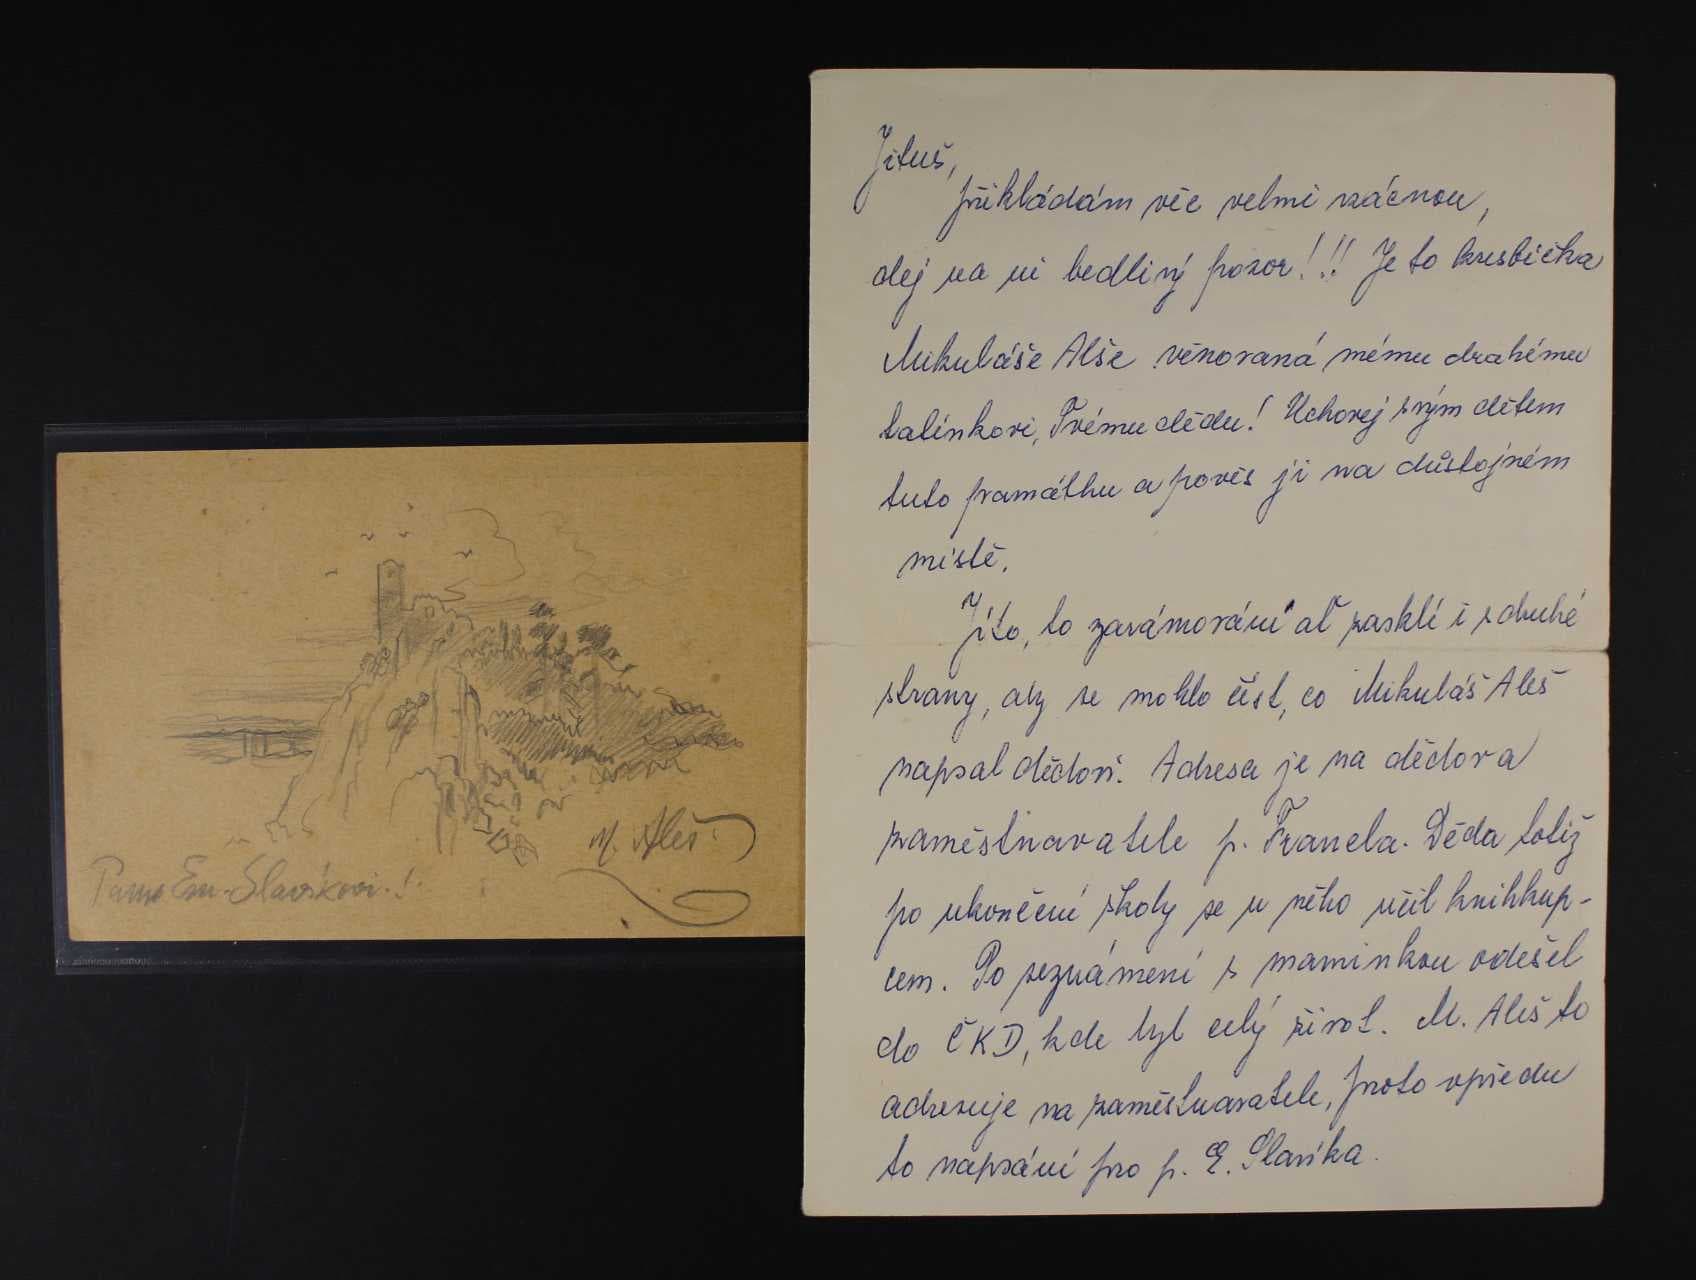 M. Aleš.
Panu Em. Slavíkovi.!
Jituš,
přikládám věc velmi vzácnou,
dej na ni bedlivý pozor!!! Je to kresbička
Mikuláše Alše věnovaná mému drahému
tatínkovi, Tvému dědu! Uchovej svým dětem
tuto památku a pověs ji na důstojném
místě.
Jíto, to zarámování ať zasklí i z druhé
strany, aby se mohlo číst, co Mikuláš Aleš
napsal dědovi. Adresa je na dědova
zaměstnavatele p. Děda totiž
po ukončení školy se u něho učil knihkup-
cem. Po seznámení s maminkou odešel
do ČKD, kde byl celý život. M. Aleš to
adresuje na zaměstnavatele, proto vpředu
to napsání pro p. E. Slavíka.